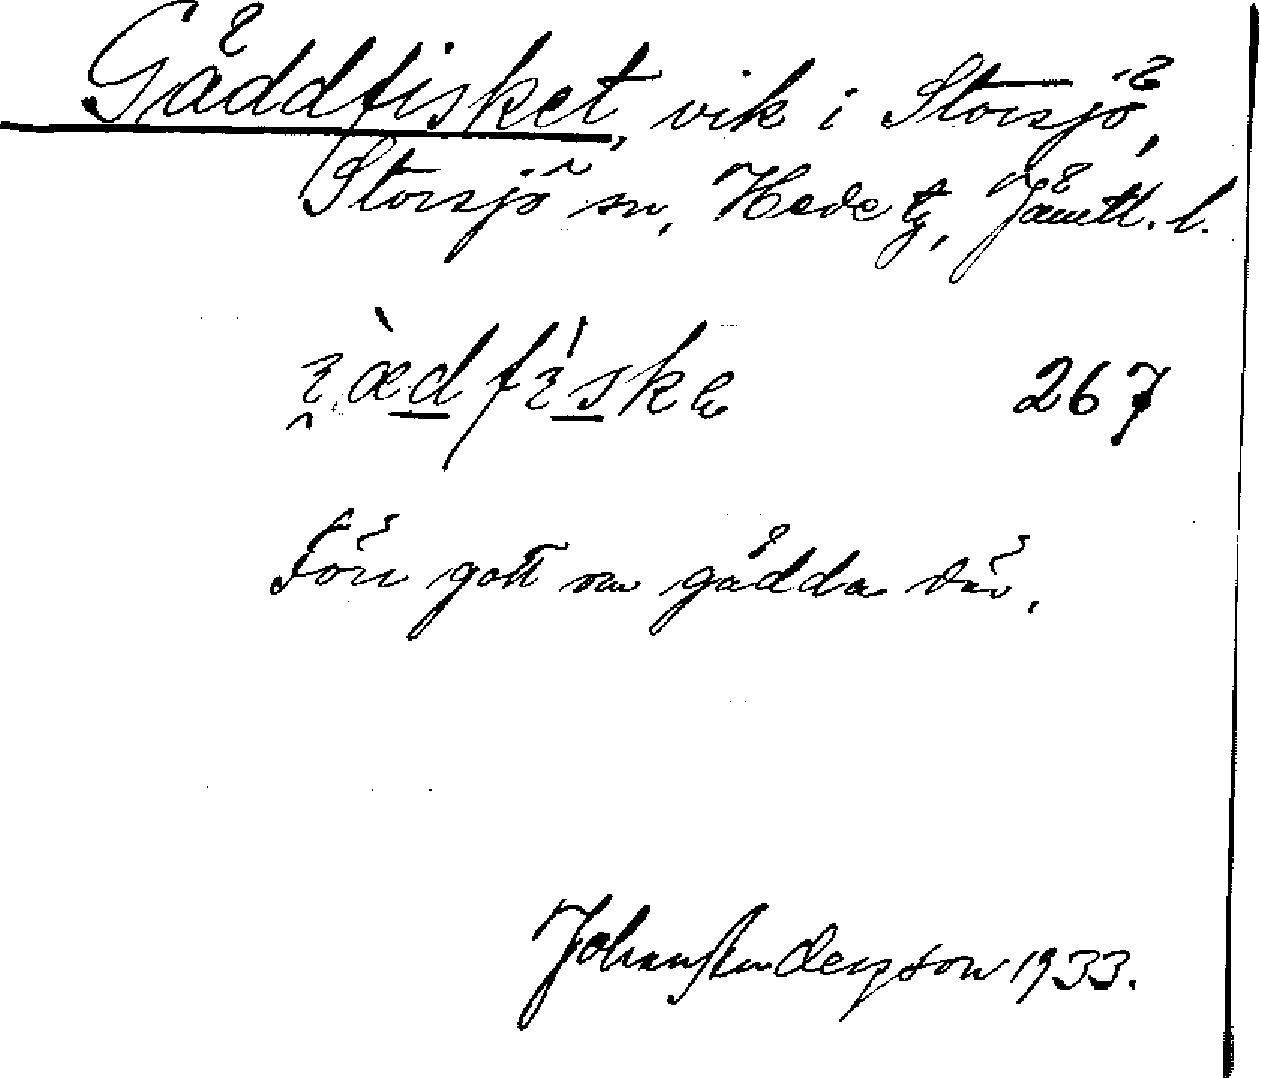 Gäddfisket, vik i Storsjö,
Storsjö sn, Hede tg, Jämtl. l.
267
För gott om gädda där.
Johan Anderson 1933.